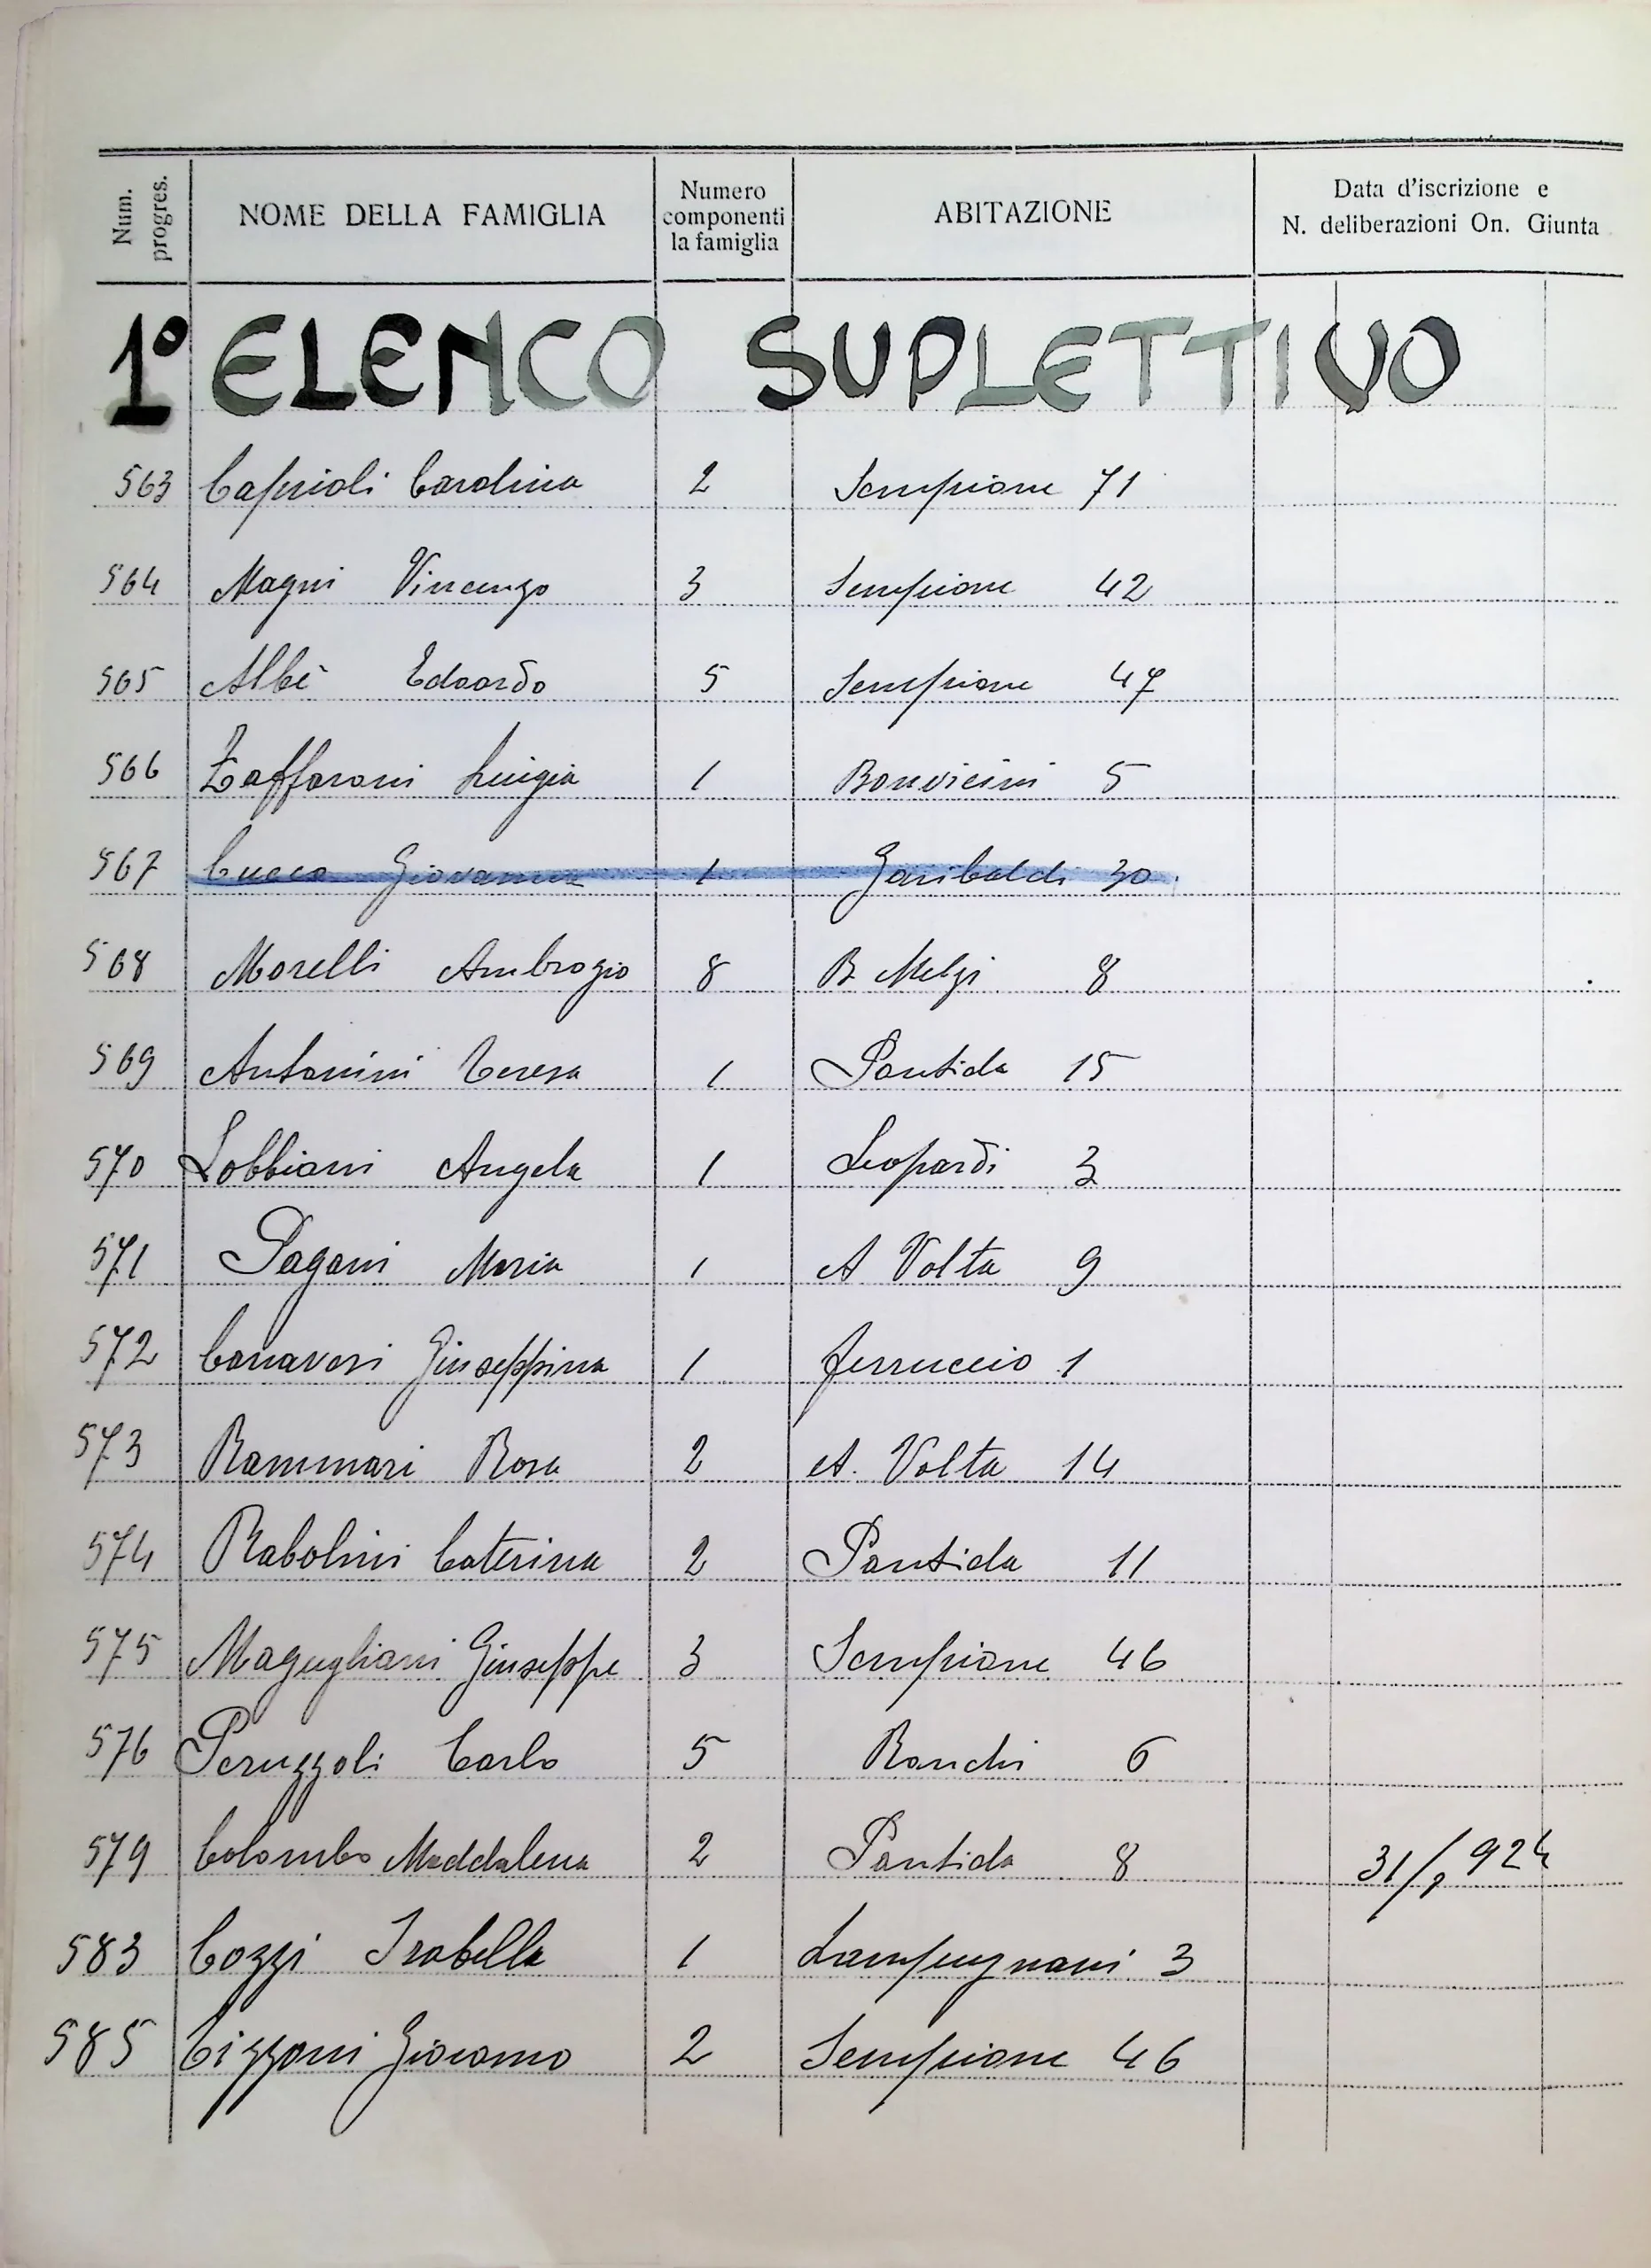 Num. progres. NOME DELLA FAMIGLIA Numero componenti la famiglia ABITAZIONE Data d'iscrizione e N. deliberazioni On. Giunta
1° ELENCO SUPLETTIVO
563 Caprioli Carolina 2 Sempione 71
564 Magni Vincenzo 3 Sempione 42
565 Albè Edoardo 5 Sempione 47
566 Zaffaroni Luigia 1 Bonvicini 5
567 Cucco Giovanna 1 Garibaldi 30
568 Morelli Ambrogio 8 B. Melzi 8
569 Antonini Teresa 1 Pontida 15
570 Lobbiani Angela 1 Leopardi 3
571 Pagani Maria 1 A Volta 9
572 Canavesi Giuseppina 1 Ferruccio 1
573 Rammari Rosa 2 A. Volta 14
574 Rabolini Caterina 2 Pontida 11
575 Magugliani Giuseppe 3 Sempione 46
576 Peruzzoli Carlo 5 Ronchi 6
579 Colombo Maddalena 2 Pontida 8
583 Cozzi Isabella 1 Lampugnani 3
585 Cizzoni Giacomo 2 Sempione 46